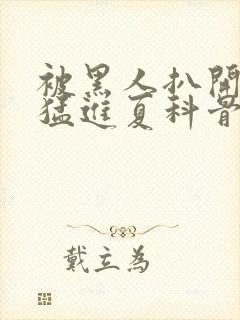 被黑人扒開
猛進夏科骨
戴立為